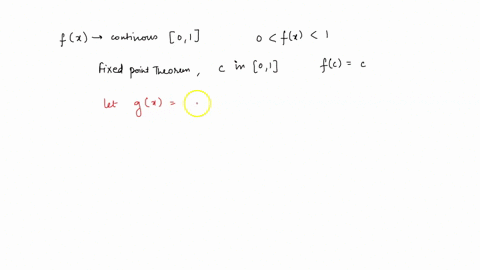 f(x) → continous [0,1] 0 < f(x) < 1
Fixed point Theorem, c in [0,1] f(c) = c
let g(x) =